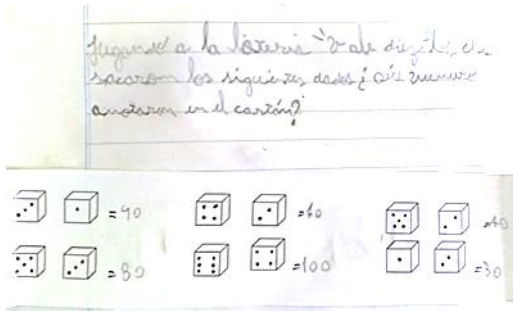 Jugando a la lotería "Vale diez"
sacaron los siguientes dados ¿Qué numero
anotaron en el cartón?
=40
=80 =100 =30